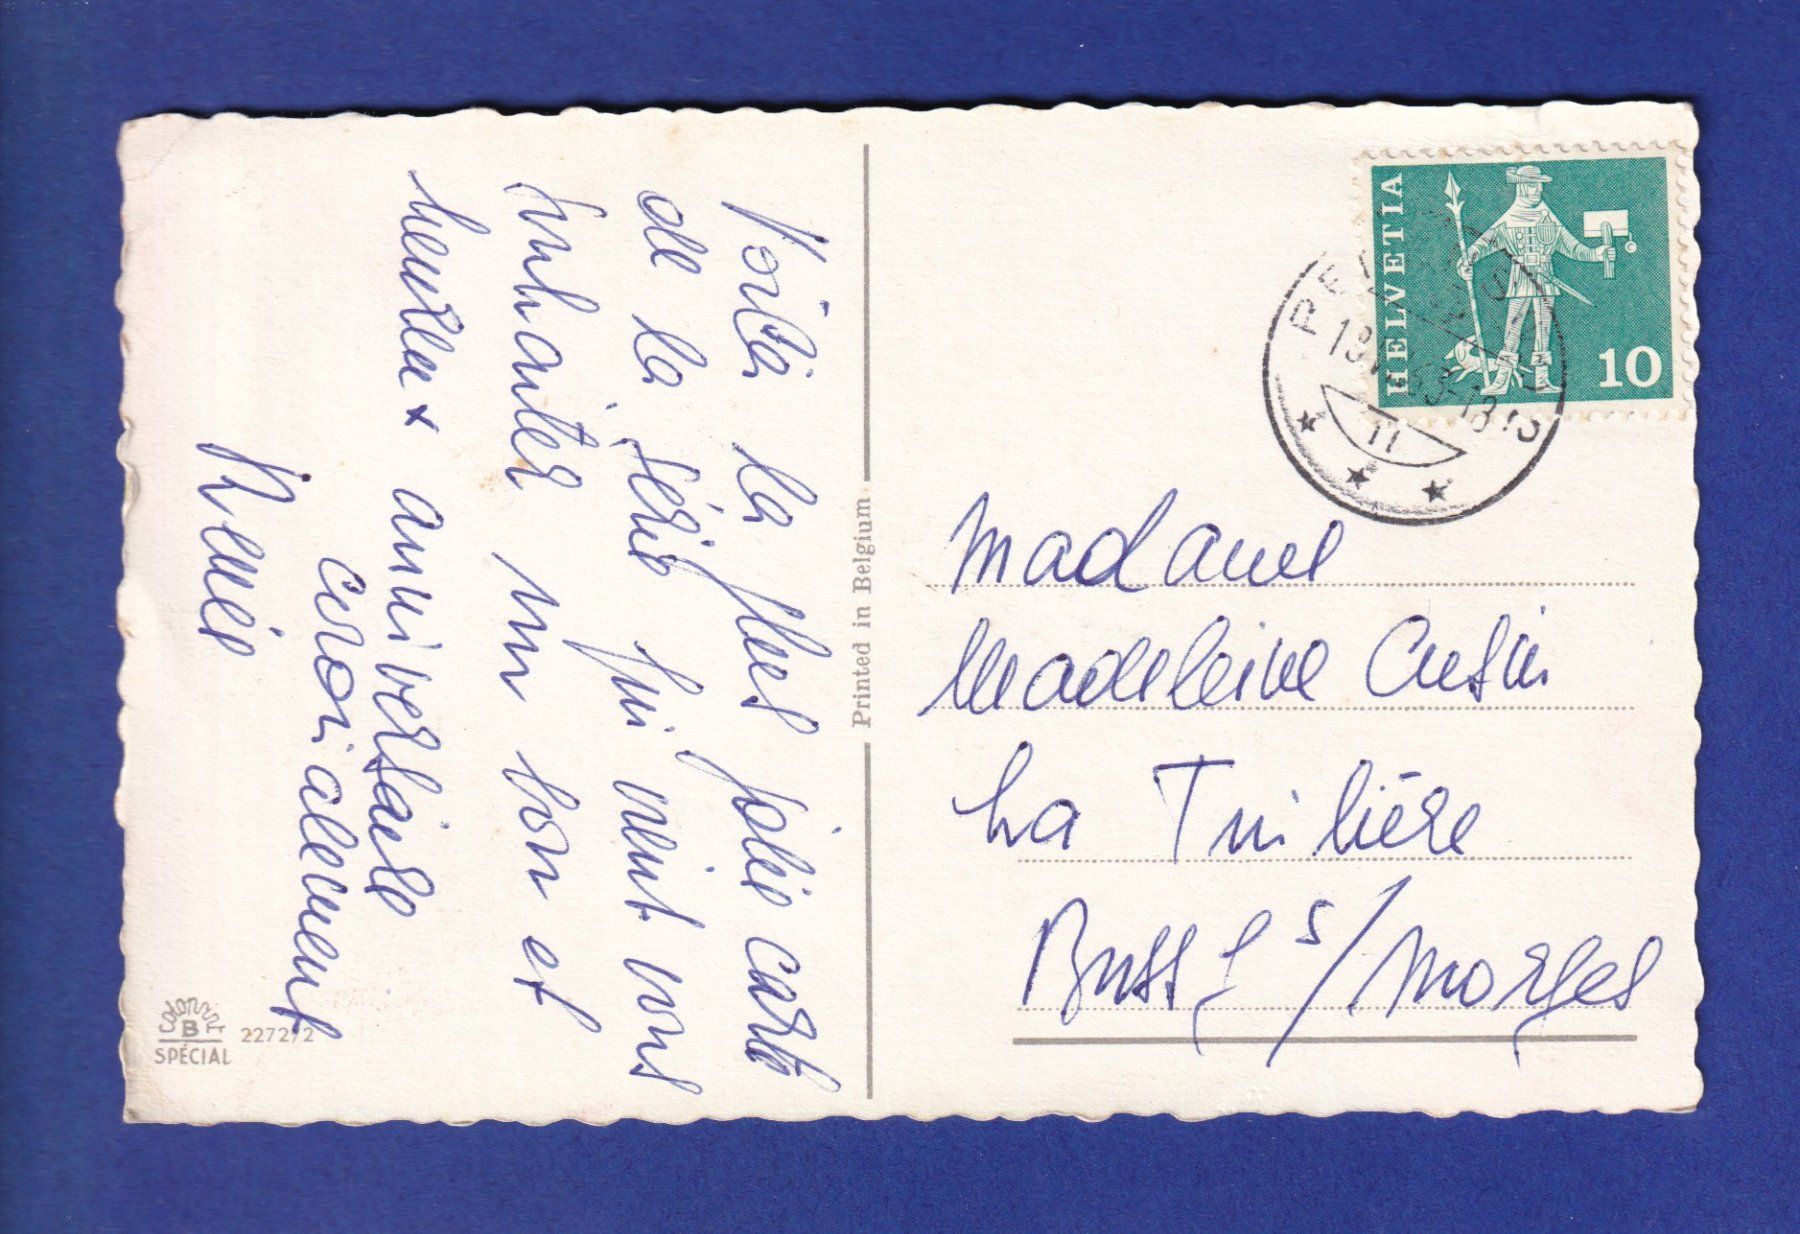 Voilà la plus jolie carte
de la série qui vient vous
souhaiter un bon et
heureux anniversaire
cordialement
Printed in Belgium
COLORPRINT
B
SPÉCIAL
22722
HELVETIA
10
11
Madame
Madeleine Cusin
La Tuilière
Bussy s/Morges